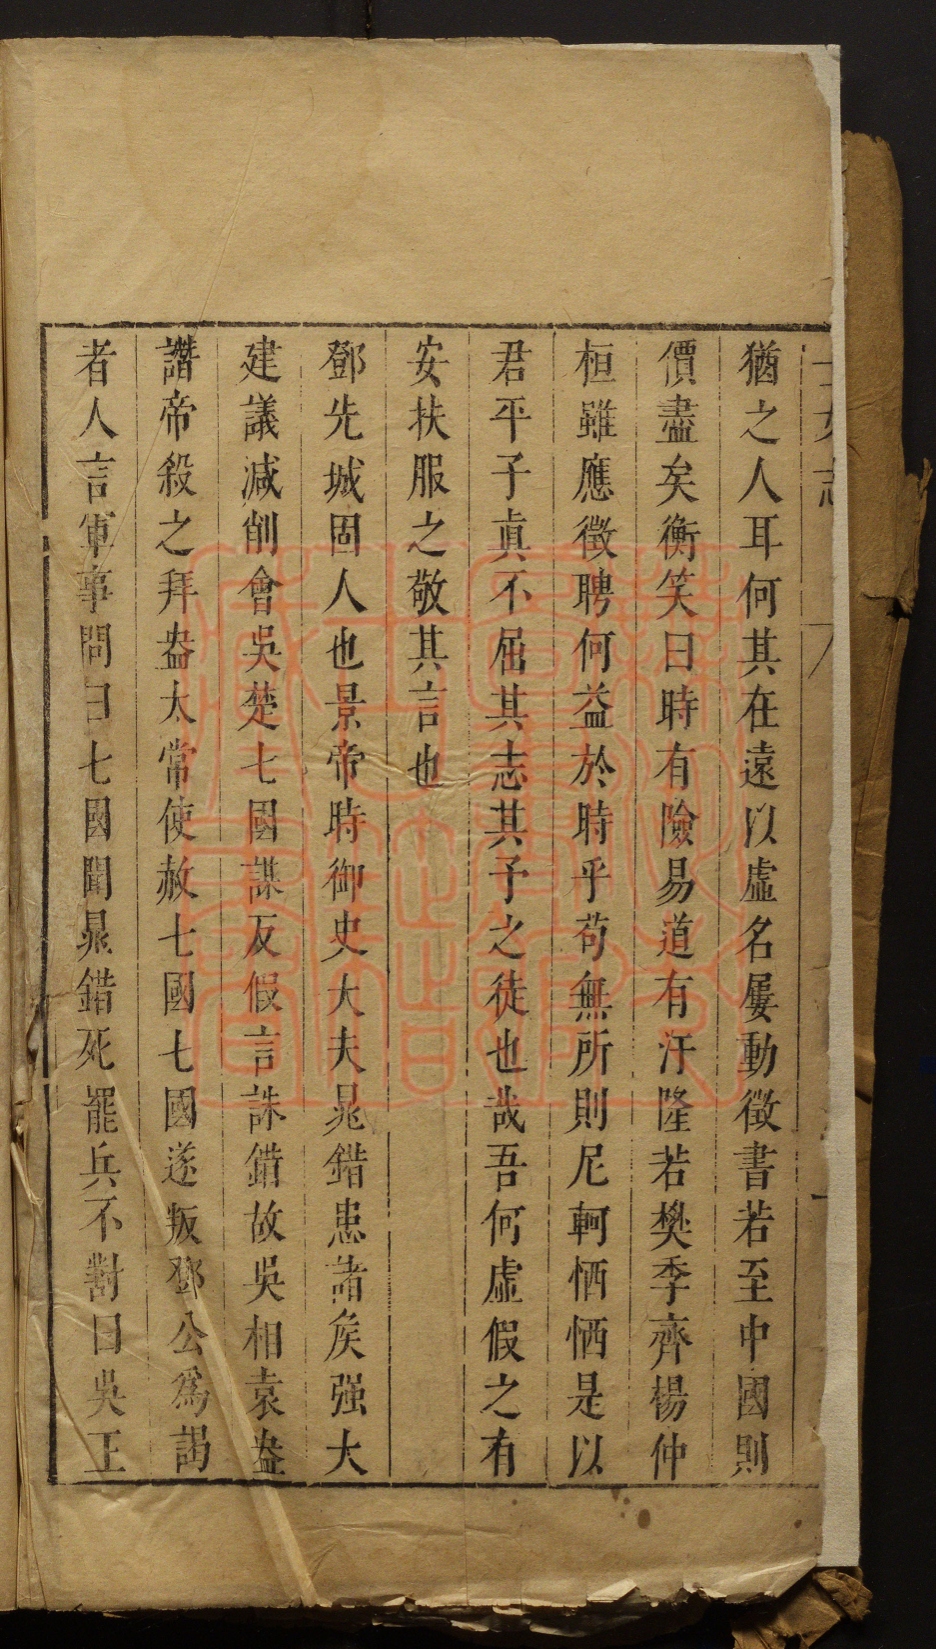 士女志
猶之人耳何其在遠以虛名屢動徵書若至中國則
價盡矣衡笑曰時有險易道有汙隆若樊季齊楊仲
桓雖應徵聘何益於時乎苟無所則尼軻恓恓是以
君平子真不屈其志其予之徒也哉吾何虛假之有
安扶服之敬其言也
鄧先城固人也景帝時御史大夫晁錯患諸侯强大
建議減削會吳楚七國謀反假言誅錯故吳相袁盎
譖帝殺之拜盎太常使赦七國七國遂叛鄧公爲謁
者人言軍事問曰七國聞晁錯死罷兵不對曰吳王